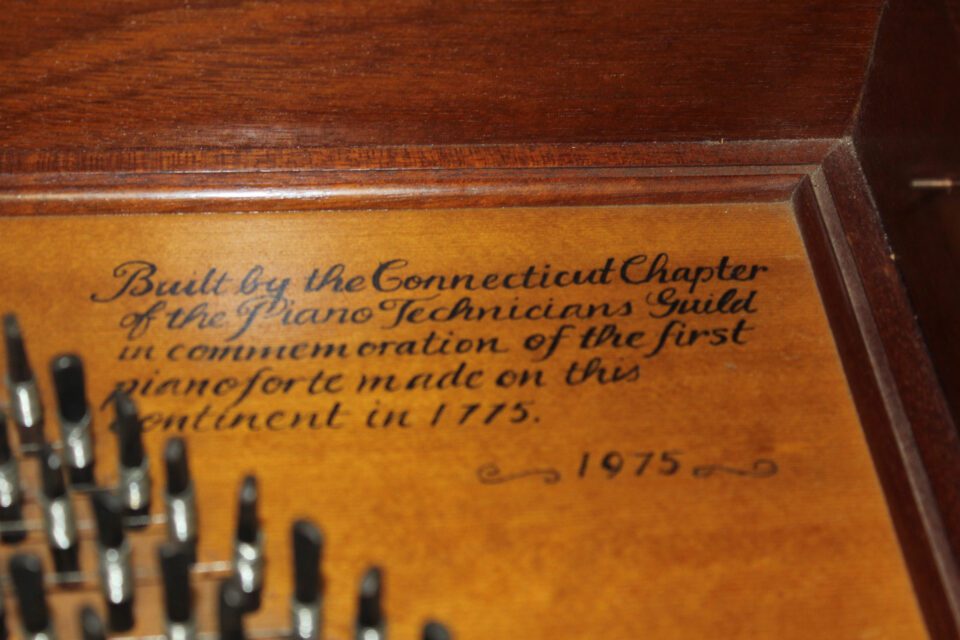 Built by the Connecticut Chapter
of the Piano Technicians Guild
in commemoration of the first
pianoforte made on this
continent in 1775.
1975